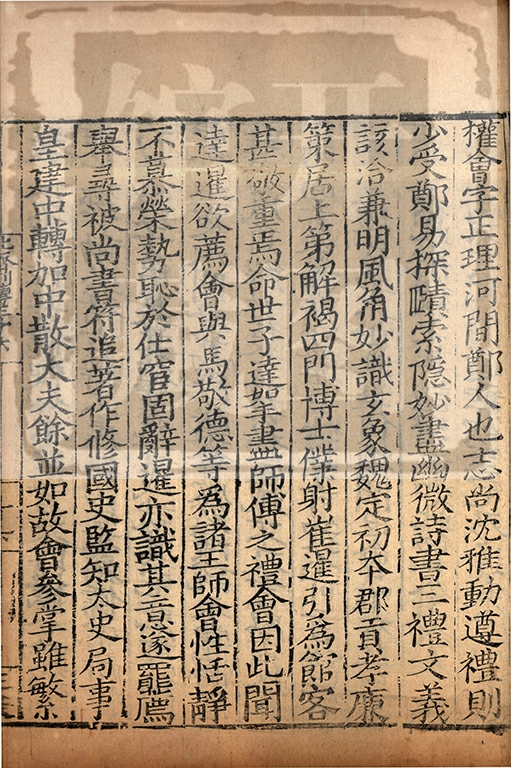 權會字正理河間鄭人也志尚沈雅動遵禮則
少受鄭易探賾索隱妙盡幽微詩書三禮文義
該洽兼明風角妙識玄象魏定初本郡貢孝廉
策居上第解褐四門博士僕射崔暹引為館客
甚敬重焉命世子達拏盡師傅之禮會因此聞
達暹欲薦會與馬敬德等為諸王師會性恬靜
不慕榮勢恥於仕宦固辭暹亦識其意遂罷薦
舉尋被尚書符追著作修國史監知太史局事
皇建中轉加中散大夫餘並如故會參掌雖繁